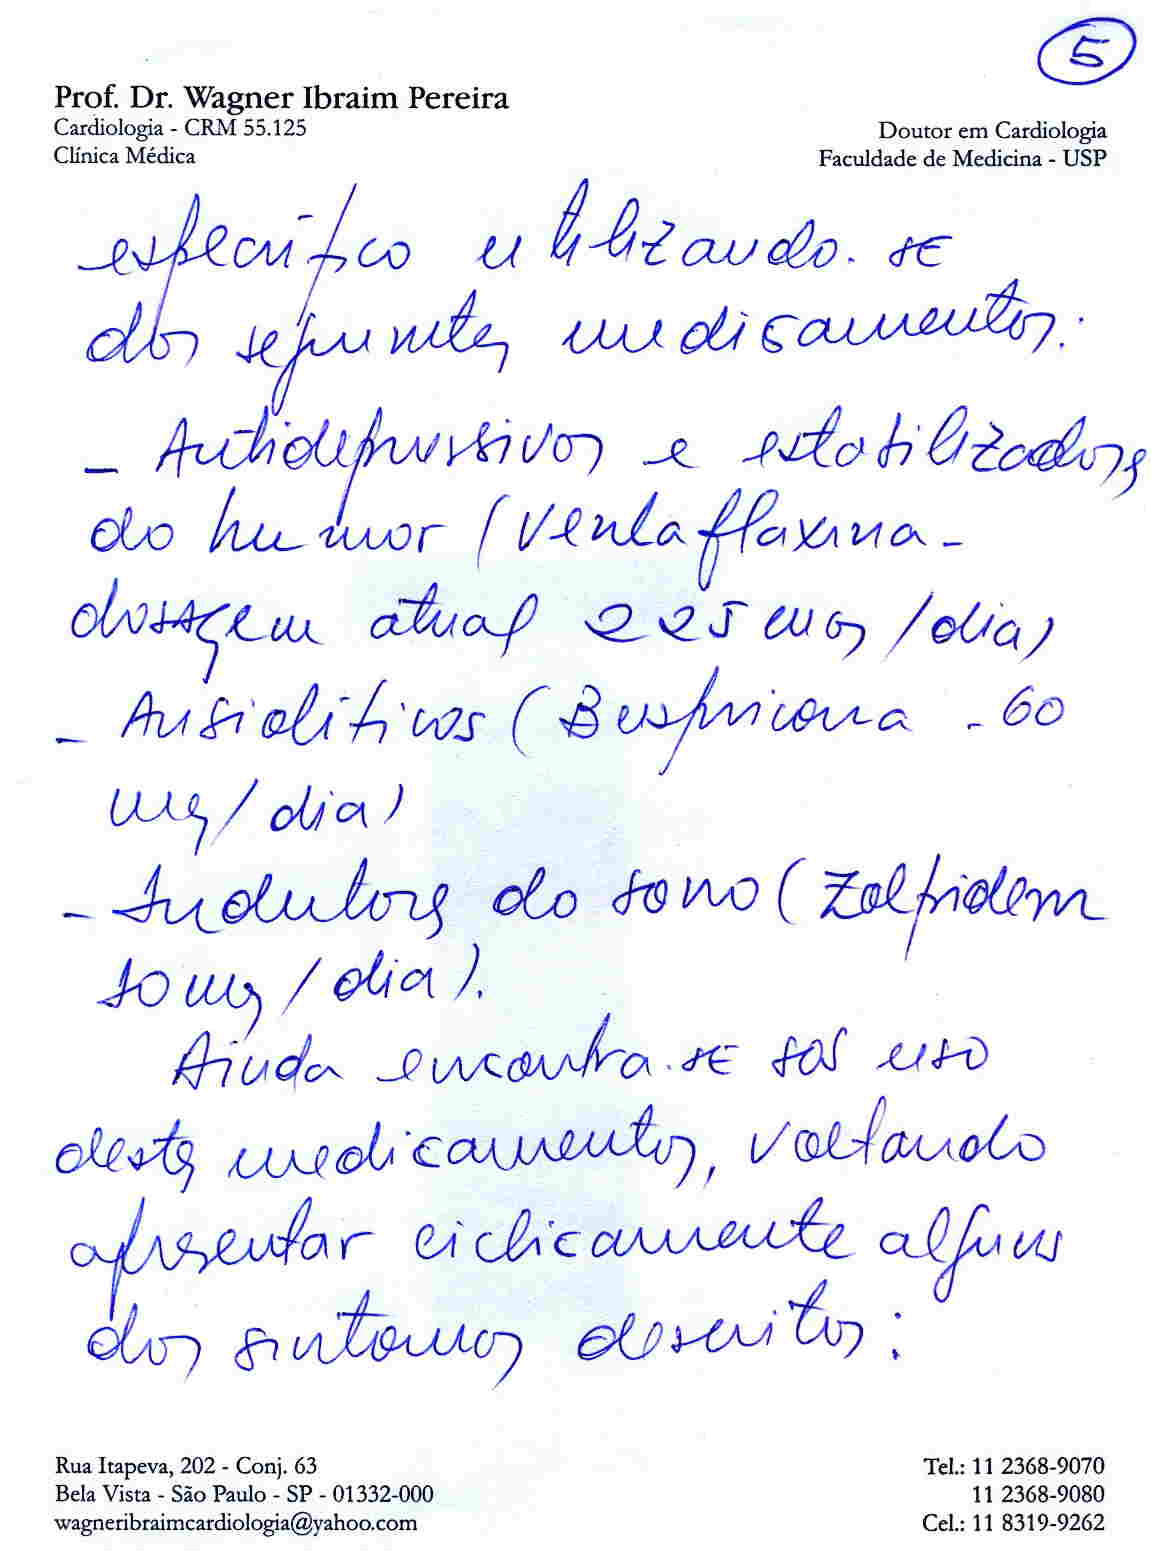 5
Prof. Dr. Wagner Ibraim Pereira
Cardiologia - CRM 55.125
Clínica Médica
Doutor em Cardiologia
Faculdade de Medicina - USP
específico utilizando-se
dos seguintes medicamentos:
- Antidepressivos e estabilizadores
do humor (Venlaflaxina -
dosagem atual 225 mg/dia)
- Ansiolíticos (Buspiriona - 60
mg/dia)
- Indutores do sono (Zolpidem
10 mg/dia).
Ainda encontra-se sob uso
destes medicamentos, voltando
apresentar ciclicamente alguns
dos sintomas descritos:
Rua Itapeva, 202 - Conj. 63
Bela Vista - São Paulo - SP - 01332-000
wagneribraimcardiologia@yahoo.com
Tel.: 11 2368-9070
11 2368-9080
Cel.: 11 8319-9262